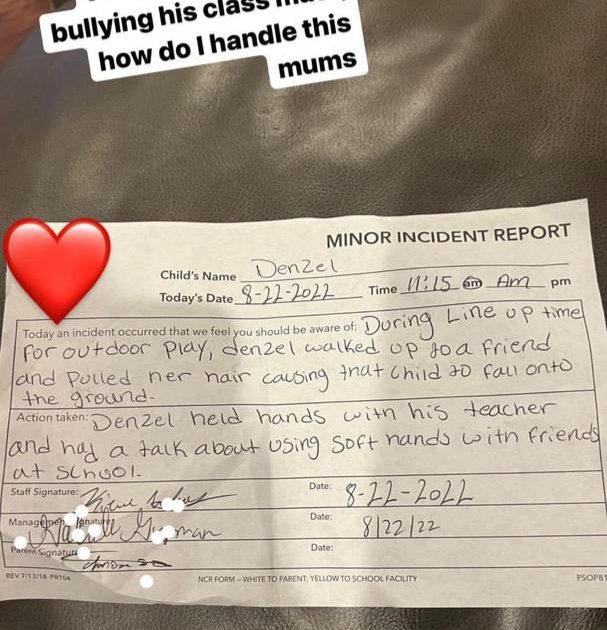 bullying his class
how do I handle this
mums
MINOR INCIDENT REPORT
Child's Name Denzel
Today's Date 8-22-2022 Time 11:15 am Am pm
Today an incident occurred that we feel you should be aware of: During Line up time
for outdoor play, denzel walked up to a friend
and pulled her hair causing that child to fall onto
the ground.
Action taken: Denzel held hands with his teacher
and had a talk about using soft hands with friends
at school.
Staff Signature: Date: 8-22-2022
Management Signature: Date: 8/22/22
Parent Signature Date:
REV 7/13/18 NCR FORM - WHITE TO PARENT; YELLOW TO SCHOOL FACILITY PSOP81